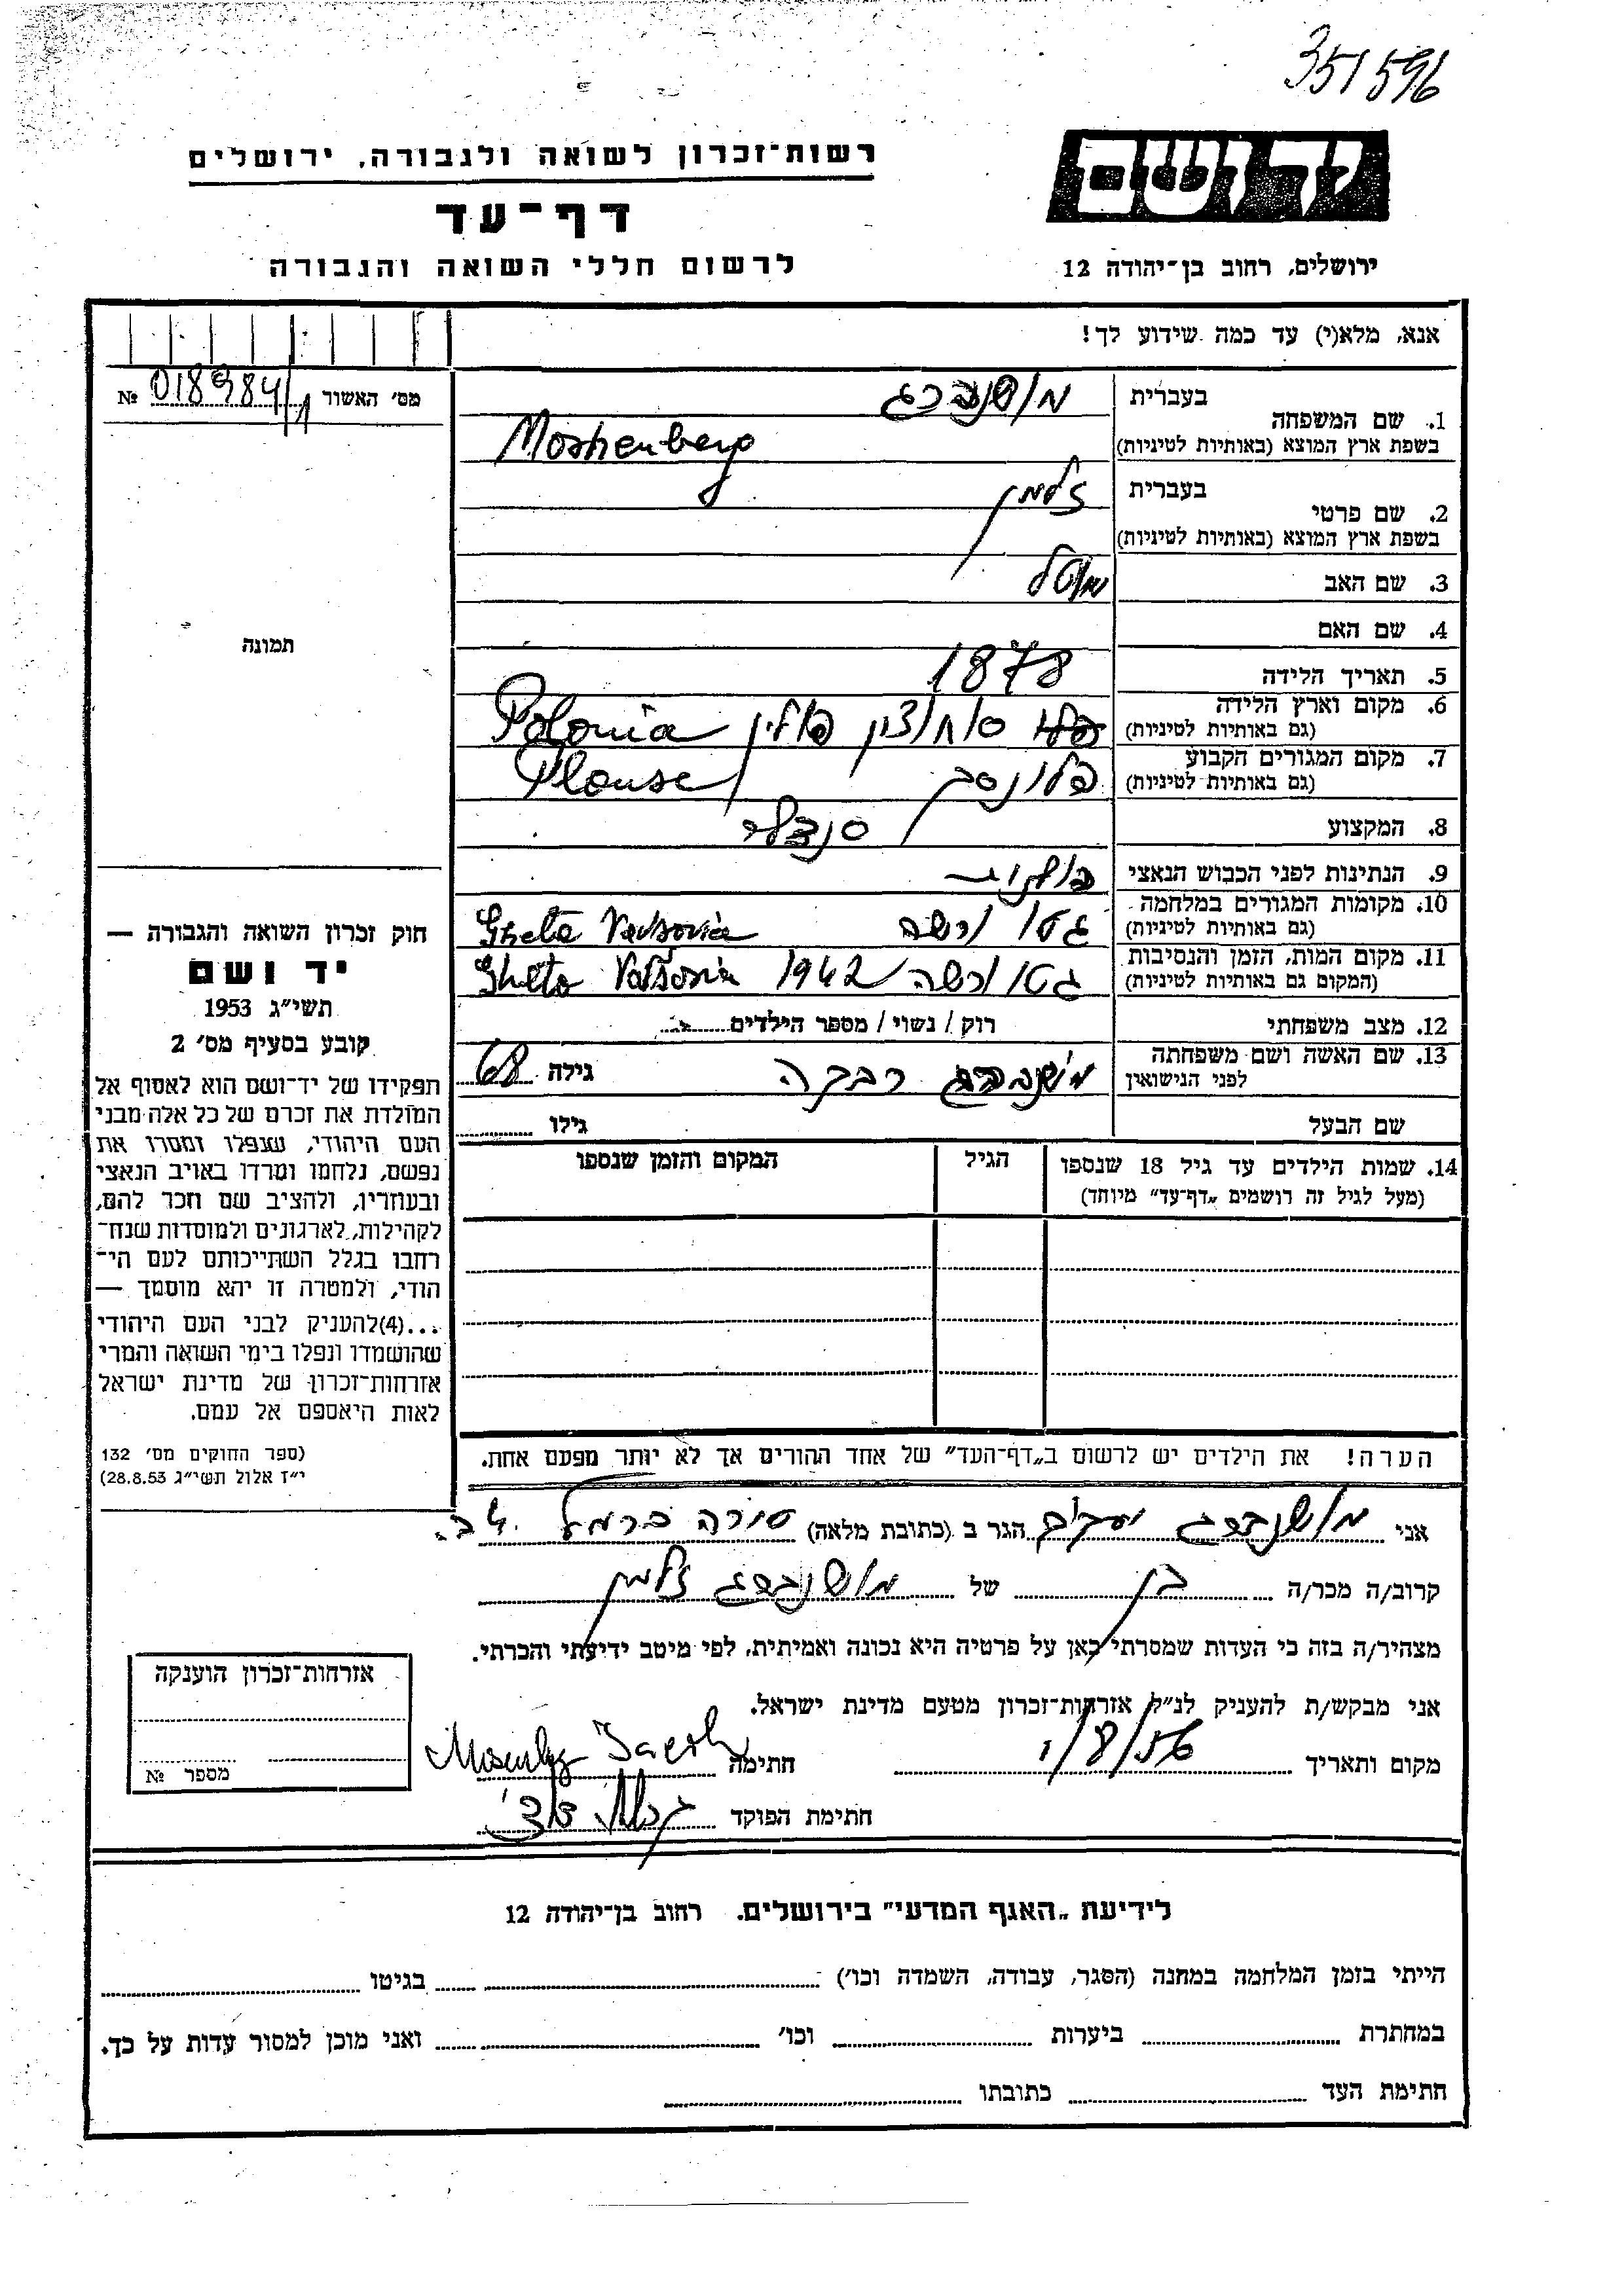 351596
רשות־זכרון לשואה ולגבורה, ירושלים
ידושם
דף־עד
לרשום חללי השואה והגבורה
ירושלים, רחוב בן־יהודה 12
אנא, מלא(י) עד כמה שידוע לך!
מס׳ האשור 018984/1 №
1. שם המשפחה
בעברית מושנברג
בשפת ארץ המוצא (באותיות לטיניות) Moshenberg
2. שם פרטי
בעברית זלמן
בשפת ארץ המוצא (באותיות לטיניות)
3. שם האב
4. שם האם
5. תאריך הלידה 1878
6. מקום וארץ הלידה
(גם באותיות לטיניות) פולין Polonia
7. מקום המגורים הקבוע
(גם באותיות לטיניות) פלונסק Plonsc
8. המקצוע סנדלר
9. הנתינות לפני הכבוש הנאצי פולנית
10. מקומות המגורים במלחמה
(גם באותיות לטיניות) גטו ורשה Gheto Varsovia
11. מקום המות, הזמן והנסיבות
(המקום גם באותיות לטיניות) גטו ורשה 1942 Gheto Varsovia
12. מצב משפחתי רוק / נשוי / מספר הילדים
13. שם האשה ושם משפחתה
לפני הנישואין מושנברג רבקה גילה 68
שם הבעל גילו
14. שמות הילדים עד גיל 18 שנספו
(מעל לגיל זה רושמים „דף־עד״ מיוחד)
הגיל
המקום והזמן שנספו
תמונה
חוק זכרון השואה והגבורה —
יד ושם
תשי״ג 1953
קובע בסעיף מס׳ 2
תפקידו של יד־ושם הוא לאסוף אל
המולדת את זכרם של כל אלה מבני
העם היהודי, שנפלו ומסרו את
נפשם, נלחמו ומרדו באויב הנאצי
ובעוזריו, ולהציב שם וזכר להם,
לקהילות, לארגונים ולמוסדות שנח־
רבו בגלל השתייכותם לעם הי־
הודי, ולמטרה זו יהא מוסמך —
...(4)להעניק לבני העם היהודי
שהושמדו ונפלו בימי השואה והמרי
אזרחות־זכרון של מדינת ישראל
לאות היאספם אל עמם.
(ספר החוקים מס׳ 132
י״ז אלול תשי״ג 28.8.53)
הערה! את הילדים יש לרשום ב„דף־העד״ של אחד ההורים אך לא יותר מפעם אחת.
אני מושנברג יעקב הגר ב (כתובת מלאה) טירה כרמל
קרוב/ה מכר/ה בן של מושנברג זלמן
מצהיר/ה בזה כי העדות שמסרתי כאן על פרטיה היא נכונה ואמיתית, לפי מיטב ידיעתי והכרתי.
אני מבקש/ת להעניק לנ״ל אזרחות־זכרון מטעם מדינת ישראל.
מקום ותאריך 1/8/56 חתימה
חתימת הפוקד
אזרחות־זכרון הוענקה
מספר №
לידיעת „האגף המדעי״ בירושלים, רחוב בן־יהודה 12
הייתי בזמן המלחמה במחנה (הסגר, עבודה, השמדה וכו׳) בגיטו
במחתרת ביערות וכו׳ ואני מוכן למסור עדות על כך.
חתימת העד כתובתו